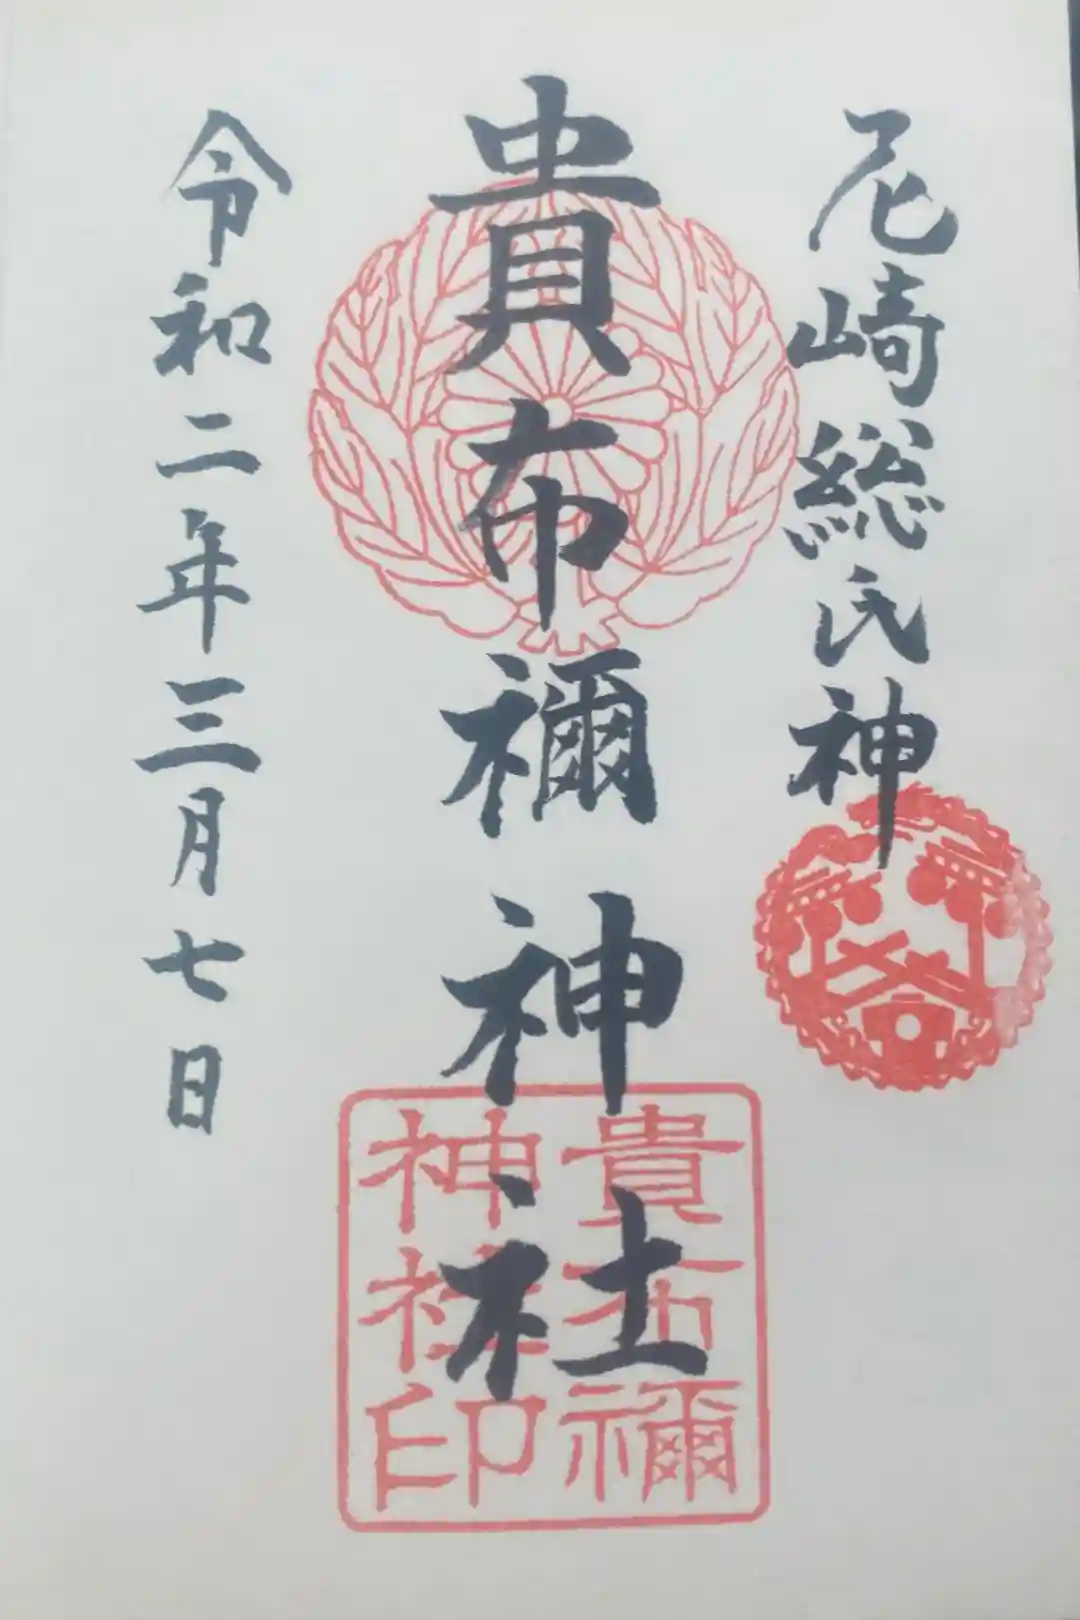 尼崎総氏神
貴布禰神社
令和二年三月七日
貴布禰
神社印